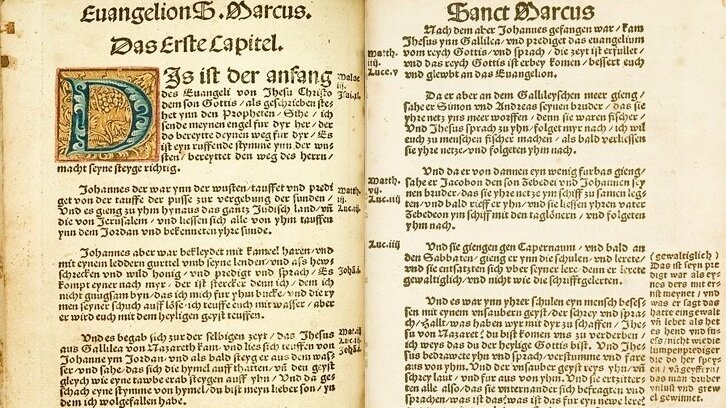 Euangelion S. Marcus.
Das Erste Capitel.
DJs ist der anfang
des Euangeli von Jhesu Christo
dem son Gottis / als geschrieben ste-
het ynn den Propheten / Sihe / ich
sende meynen engel fur dyr her / der
do bereytte deynen weg fur dyr / Es
ist eyn ruffende stymme ynn der wu-
sten / bereyttet den weg des herrn /
macht seyne steyge richtig.
Johannes der war ynn der wusten / tauffet vnd predi
get von der tauffe der pusse zur vergebung der sunden /
Vnd es gieng zu yhm hynaus das gantz Judisch land / vnd
die von Jerusalem / vnd liessen sich alle von yhm tauffen
ynn dem Jordan vnd bekenneten yhre sunde.
Johannes aber war bekleydet mit kameel haren / vnd
mit eynem leddern gurttel vmb seyne lenden / vnd ass hew-
schrecken vnd wild honig / vnd prediget vnd sprach / Es
kompt eyner nach myr / der ist stercker denn ich / dem ich
nicht gnugsam byn / das ich mich fur yhm bucke / vnd die ry-
men seyner schuch aufflöse / ich teuffe euch mit wasser / aber
er wird euch mit dem heyligen geyst teuffen.
Vnd es begab sich zur der selbigen zeyt / das Jhesus
aus Gallilea von Nazareth kam / vnd lies sich teuffen von
Johanne ym Jordan / vnd als bald steyg er aus dem was-
ser / vnd sahe / das sich die hymel auff thatten / vnd den geyst
gleych wie eyne tawbe erab steygen auff yhn / Vnd da ge-
schach eyne stymme von hymel / du bist meyn lieber son / yn
dem ich wolgefallen habe.
Sanct Marcus
Nach dem aber Johannes gefangen war / kam
Jhesus ynn Gallilea / vnd prediget das euangelium
vom reych Gottis / vnd sprach / die zeyt ist erfullet /
vnd das reych Gottis ist erbey komen / bessert euch
vnd glewbt an das Euangelion.
Da er aber an dem Gallileyschen meer gieng /
sahe er Simon vnd Andreas seynen bruder / das sie
yhre netz yns meer worffen / denn sie waren fischer /
Vnd Jhesus sprach zu yhn / folget myr nach / ich wil
euch zu menschen fischer machen / als bald verliessen
sie yhre netze / vnd folgeten yhm nach.
Vnd da er von dannen eyn wenig furbas gieng /
sahe er Jacobon den son Zebedei vnd Johannen sey
nen bruder / das sie yhre netze ym schiff zu samen leg-
ten / vnd bald rieff er yhn / vnd sie liessen yhren vater
Zebedeon ym schiff mit den taglönern / vnd folgeten
yhm nach.
Vnd sie giengen gen Capernaum / vnd bald an
den Sabbaten / gieng er ynn die schulen / vnd lerete /
vnd sie entsatzten sich vber seyner lere / denn er lerete
gewaltiglich / vnd nicht wie die schrifftgelerten.
Vnd es war ynn yhrer schulen eyn mensch beses-
sen mit eynem vnsaubern geyst / der schrey vnd sprach
/ Hallt / was haben wyr mit dyr zu schaffen / Jhe-
su von Nazaret? du bist komen vns zu verderben /
ich weys das du der heylige Gottis bist. Vnd Jhesus
bedrawete yhn vnd sprach / verstumme vnd fare
aus von yhm. Vnd der vnsauber geyst reys yhn / vnd
schrey laut / vnd fur aus von yhm. Vnd sie ertzitter-
ten alle also / das sie vnternander sich befragten vnd
sprachen / was ist das? was ist das fur eyn newe lere?
Matth.
iiij.
Luce.v
Matth.
Luc.iiij
(gewaltiglich)
Das ist seyn pre
digt war als ey-
nes ders mit ern
nst meynet / vnd
was er sagt das
hatte eyn gewalt
vnd lebet als het
es hend vnd fu-
ess / nicht wie die
lumpenprediger